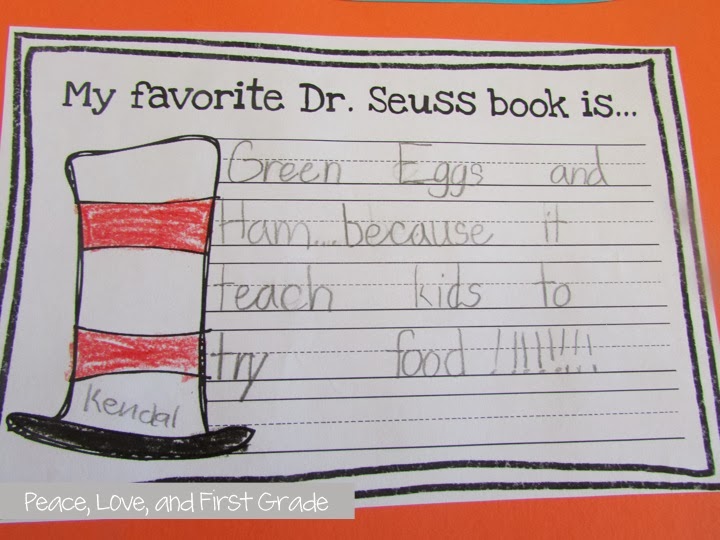 My favorite Dr. Seuss book is...
Green Eggs and
Ham....because it
teach kids to
try food !!!!!!!!!
Kendal
Peace, Love, and First Grade